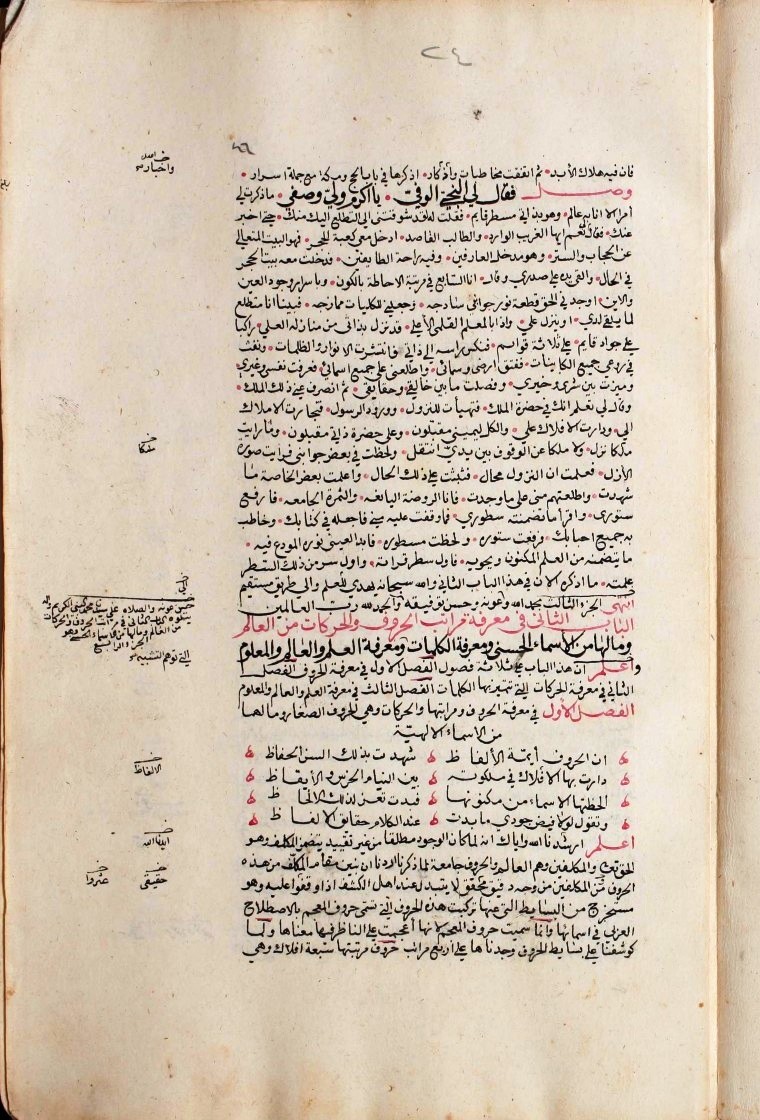 ٢٤
فان فيه هلاك الأبد • ثم اتفقت مخاطبات وأذكار • اذكرها في باب الحج ومكة مع جملة اسرار •
وصل فقال لي النجي الوفي • يا أكرم ولي وصفي • ما ذكرت لي
أمرا الا انا به عالم • وهو بذاتي مسطر قايم • فقلت له لقد شوقتني الى التطلع اليك منك • حتى اخبر
عنك • فقال نعم ايها الغريب الوارد • والطالب القاصد • ادخل معي كعبة الحجر • فهو البيت المتعالي
عن الحجاب والستر • وهو مدخل العارفين • وفيه راحة الطايفين • فدخلت معه بيت الحجر
في الحال • والقى يده على صدري وقال • انا السابع في مرتبة الاحاطة بالكون • وباسرار وجود العين
والاين • اوجدني الحق قطعة نور حوائي ساذجه • وجعلني للكليات ممازجه • فبينا انا متطلع
لما يلقى لدي • او ينزل علي • واذا بالعلم القلمي الأعلى • قد نزل بذاتي من منازله العلى • راكبا
على جواد قايم • على ثلاثة قوايم • فنكس راسه الى ذاتي • فانتشرت الانوار والظلمات • ونفث
في روعي جميع الكاينات • ففتق ارضي وسمائي • واطلعني على جميع اسمائي • فعرفت نفسي وغيري
وميزت بين شري وخيري • وفصلت ما بين خالقي وحقايقي • ثم انصرف عني ذلك الملك •
وقال لي تعلم انك في حضرة الملك • فتهيأت للنزول • وورود الرسول • فتجارت الاملاك
الي • ودارت الافلاك علي • والكل ليميني مقبلون • وعلى حضرة ذاتي مقبلون • وما رايت
ملكا نزل • ولا ملكا عن الوقوف بين يدي انتقل • ولحظت في بعض جوانبي فرايت صورة
الأزل • فعلمت ان النزول محال • فثبتت على ذلك الحال • واعلمت بعض الخاصة ما
شهدت • واطلعتهم مني على ما وجدت • فانا الروضة اليانعه • والثمرة الجامعه • فارفع
ستوري • واقرا ما تضمنته سطوري • فما وقفت عليه مني فاجعله في كتابك • وخاطب
به جميع احبابك • فرفعت ستوره • ولحظت مسطوره • فابدا لعيني نوره المودع فيه •
ما يتضمنه من العلم المكنون ويحويه • فاول سطر قراته • واول سر من ذلك السطر
علمته • ما اذكره الآن في هذا الباب الثاني والله سبحانه يهدي للعلم والى طريق مستقيم
انتهى الجزء الثالث بحمد الله وعونه وحسن توفيقه والحمد لله رب العالمين
الباب الثاني في معرفة مراتب الحروف والحركات من العالم
وما لها من الأسماء الحسنى ومعرفة الكلمات ومعرفة العلم والعالم والمعلوم
واعلم ان هذا الباب على ثلاثة فصول الفصل الاول في معرفة الحروف الفصل
الثاني في معرفة الحركات التي تتميز بها الكلمات الفصل الثالث في معرفة العلم والعالم والمعلوم
الفصل الأول في معرفة الحروف ومراتبها والحركات وهي الحروف الصغار وما لها
من الاسماء الالهية
ان الحروف أيمة الألفاظ شهدت بذلك السن الحفاظ
دارت بها الافلاك في ملكوته بين النيام الخرس والأيقاظ
الحظنها الاسماء من مكنونها فبدت تعز لذلك الالحاظ
وتقول لولا فيض جودي ما بدت عند الكلام حقايق الالفاظ
اعلم ارشدنا الله واياك انه لما كان الوجود مطلقا من غير تقييد يتضمن المكلف وهو
الحق تعالى والمكلفين وهم العالم والحروف جامعة لما ذكرنا اردنا ان نبين مقام المكلف من هذه
الحروف من المكلفين من وجه دقيق محقق لا يتبدل عند اهل الكشف اذا وقفوا عليه وهو
مستخرج من البسايط التي عنها تركبت هذه الحروف التي تسمى حروف المعجم بالاصطلاح
العربي في اسمائها وانما سميت حروف المعجم لانها أعجمت على الناظر فيها معناها ولما
كوشفنا على بسايط الحروف وجدناها على أربع مراتب حروف مرتبتها سبعة افلاك وهي
واخبار
ملكا
حسن عونه والصلاه على سيدنا محمد النبي الكريم واله
يتلوه الباب الثاني في مراتب الحروف والحركات
من العالم ومالها من الاسماء الحسنى وهو
الجزء الرابع
التي توهم التشبيه
الالفاظ
ايدنا الله
حقيقي عثروا